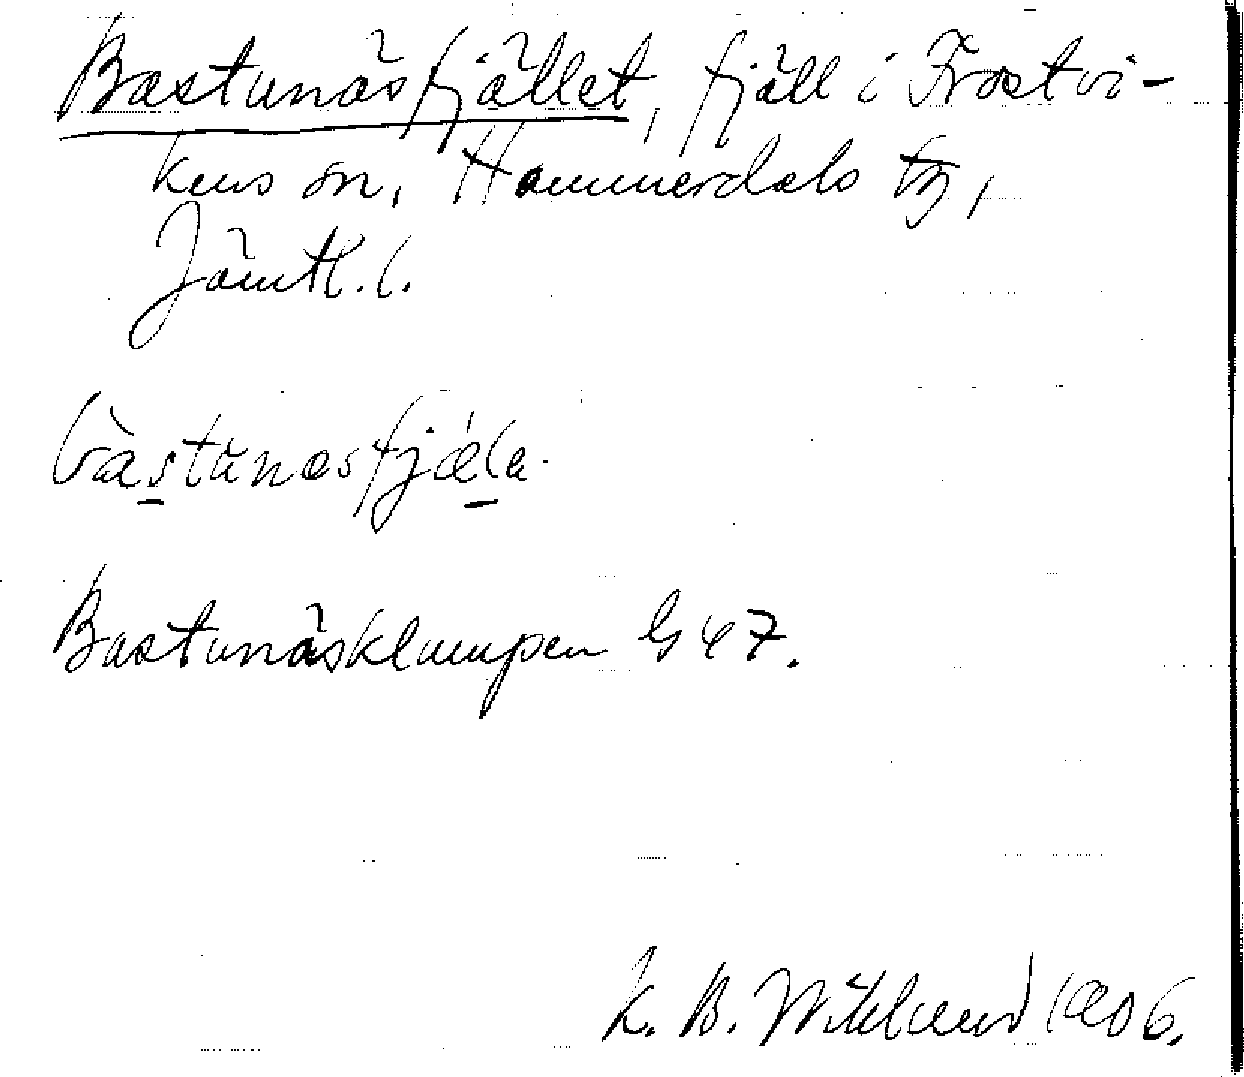 Bastunäsfjället, fjäll i Frostvi-
kens sn, Hammerdals tg,
Jämtl. l.
bàstŭnæsfjǽla.
Bastunäsklumpen G 47.
K. B. Wiklund 1906.